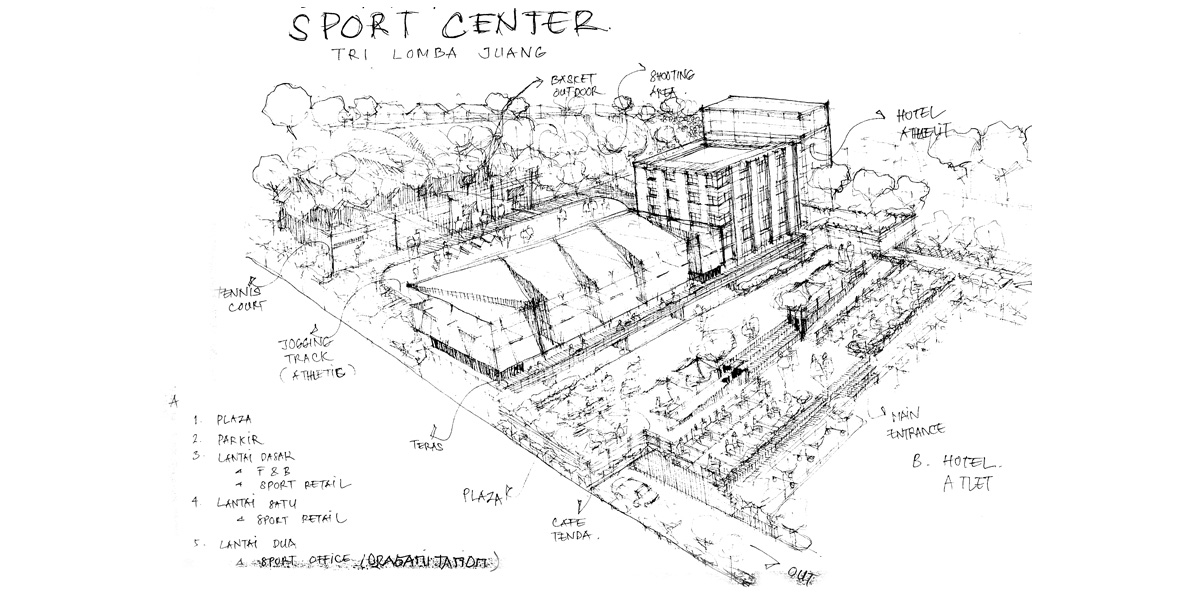 SPORT CENTER
TRI LOMBA JUANG
BASKET
OUTDOOR
SHOOTING
AREA
HOTEL
TENNIS
COURT
JOGGING
TRACK
TERAS
PLAZA
CAFE
TENDA.
MAIN
ENTRANCE
OUT
A
1. PLAZA
2. PARKIR
3. LANTAI DASAR
F & B
SPORT RETAIL
4. LANTAI SATU
SPORT RETAIL
5. LANTAI DUA
SPORT OFFICE
B. HOTEL.
ATLET